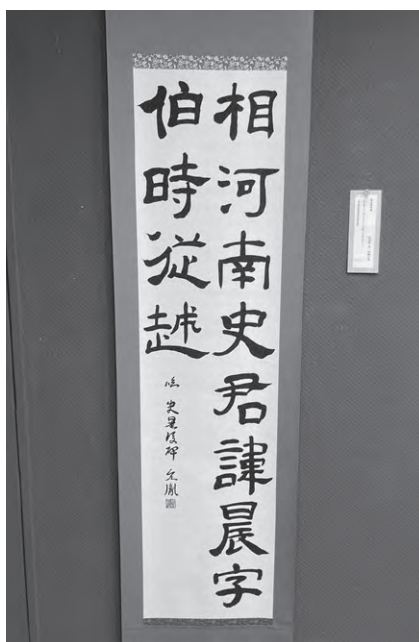 相河南史君諱晨字
伯時從越
臨 史晨後碑 允胤